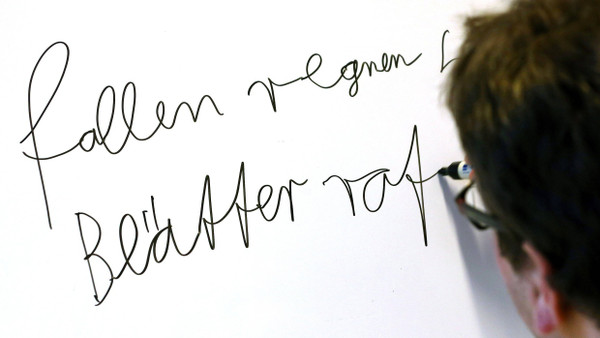 fallen regnen
Blätter raf